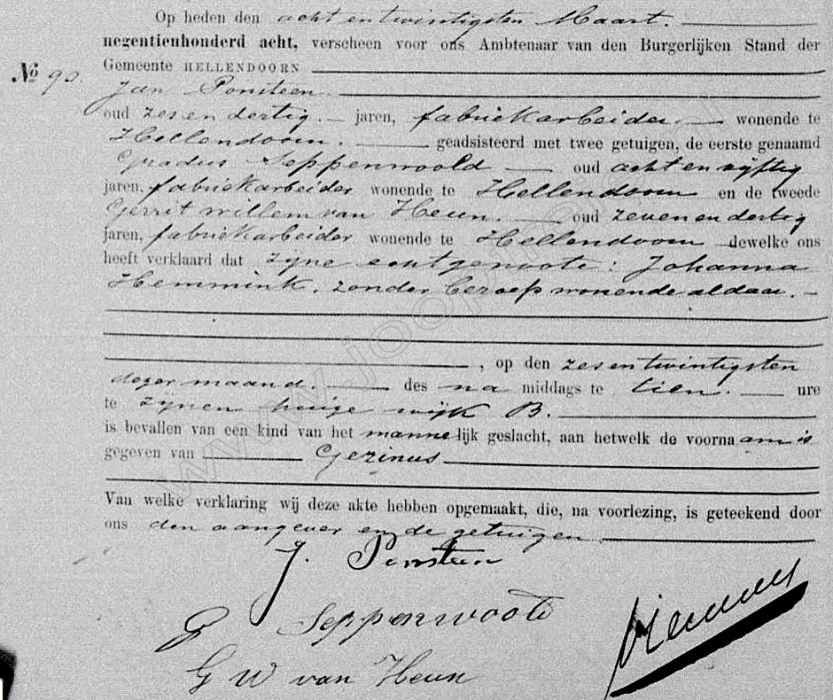 Op heden den acht en twintigsten Maart.
negentienhonderd acht, verscheen voor ons Ambtenaar van den Burgerlijken Stand der
Gemeente HELLENDOORN
No 90.
Jan Ponsteen
oud zes en dertig jaren, fabriekarbeider wonende te
Hellendoorn. geadsisteerd met twee getuigen, de eerste genaamd
Gradus Seppenwoold oud acht en vijftig
jaren, fabriekarbeider wonende te Hellendoorn en de tweede
Gerrit Willem van Heun. oud zeven en dertig
jaren, fabriekarbeider wonende te Hellendoorn dewelke ons
heeft verklaard dat zijne echtgenoote: Johanna
Hemmink, zonder beroep wonende aldaar.
, op den zes en twintigsten
dezer maand. des na middags te tien. ure
te zijnen huize wijk B.
is bevallen van een kind van het mannelijk geslacht, aan hetwelk de voornaam is
gegeven van Gezinus
Van welke verklaring wij deze akte hebben opgemaakt, die, na voorlezing, is geteekend door
ons den aangever en de getuigen.
J. Ponsteen
G Seppenwoold
G W van Heun